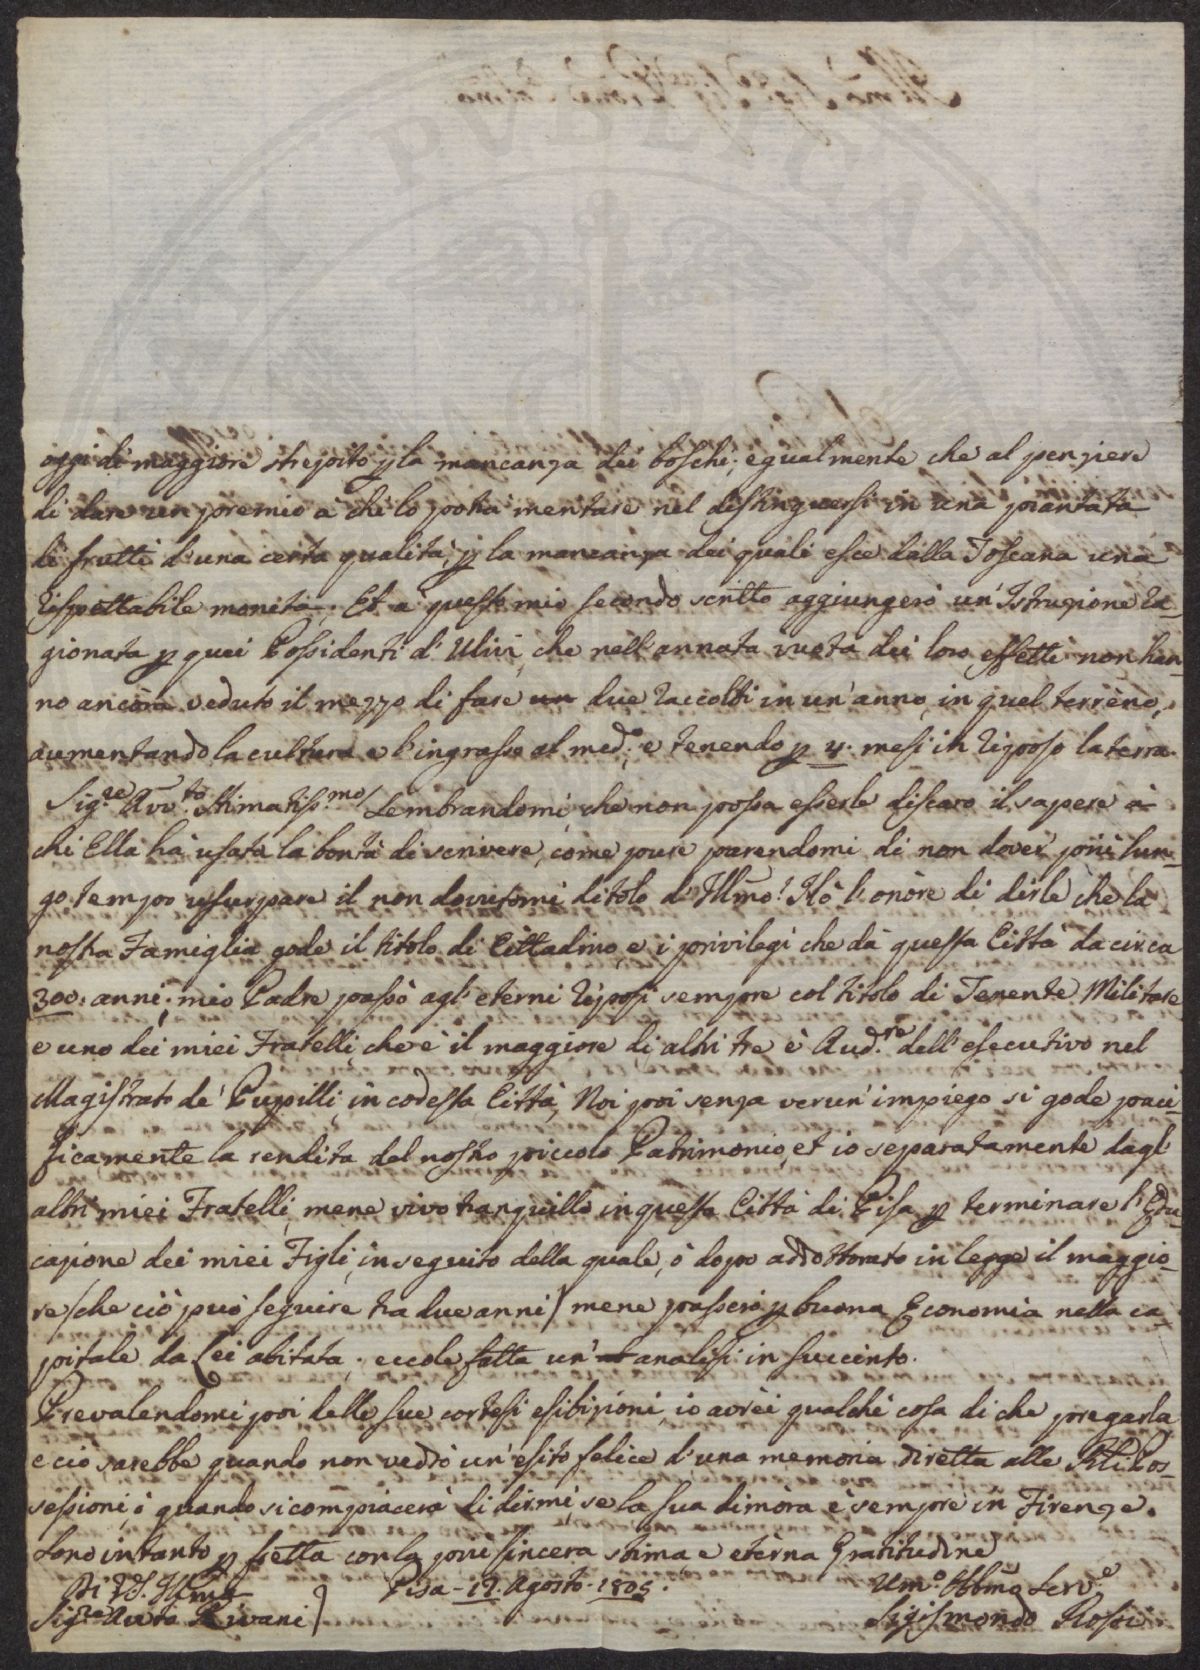 oggi di maggiore strepito p la mancanza dei boschi; egualmente che al penziere
di dare un premio a chi lo potrà meritare nel distinguersi in una piantata
di frutti d'una certa qualità, p la mancanza dei quali esce dalla Toscana una
rispettabile moneta; Et a questo mio secondo scritto aggiungerò un'Istruzione ra-
gionata p quei Possidenti d'Ulivi, che nell'annata vuota dei loro effetti non han-
no ancora veduto il mezzo di fare due raccolti in un'anno, in quel terreno,
aumentando la cultura e l'ingrasso al med.º e tenendo p 4. mesi in riposo la terra.
Sig.re Avv.to Stimatiss.mo/ Sembrandomi, che non possa esserle discaro il sapere à
chi Ella hà usata la bontà di scrivere, come pure parendomi di non dover più lun-
go tempo usurpare il non dovutomi titolo d'Illmo! Hò l'onore di dirle che la
nostra Famiglia gode il titolo di Cittadino, e i privilegi che dà questa Città da circa
300: anni; mio Padre passò agl'eterni riposi sempre col titolo di Tenente Militare
e uno dei miei Fratelli che è il maggiore di altri tre è Aud.re dell'esecutivo nel
Magistrato de' Pupilli in codessa Città, Noi poi senza verun'impiego si gode paci-
ficamente la rendita del nostro piccolo Patrimonio, et io separatamente dagl'
altri miei Fratelli, mene vivo tranquillo in questa Città di Pisa p terminare l'Edu-
cazione dei miei Figli, in seguito della quale, ò dopo addottorato in legge il maggio-
re /che ciò può seguire tra due anni/ mene passerò p buona Economia nella ca-
pitale da Lei abitata; eccole fatta un' analisi in succinto.
Prevalendomi poi delle sue cortesi esibizioni, io avrei qualche cosa di che pregarla
e ciò sarebbe quando non veddo un'esito felice d'una memoria diretta alle RRli Pos-
sessioni, ò quando si compiacerà di dirmi, se la sua dimora è sempre in Firenze.
Sono intanto p fretta con la più sincera stima e eterna Gratitudine
Di VS. Illma Pisa - 12. Agosto - 1805. Um.º Obbmo Serv.e
Sig.re Avvto Rivani) Sigismondo Rossi